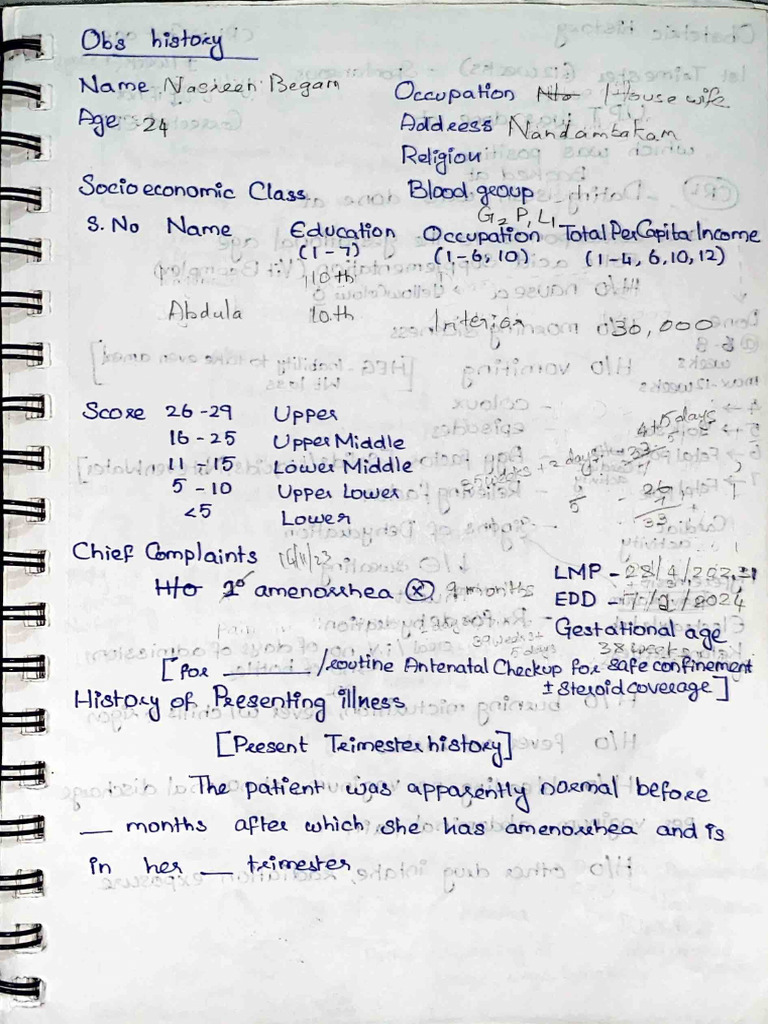 Obs history
Name Nasreen Begam
Occupation House wife
Age :24
Address Nandambakam
Religion
Socioeconomic Class
Blood group
G2 P1 L1
S.No Name Education Occupation Total Per Capita Income
(1-7) (1-6, 10) (1-4, 6, 10, 12)
10th
Abdula 10th Interiar 30,000
Score 26-29 Upper
16-25 Upper Middle
11-15 Lower Middle
5-10 Upper Lower
<5 Lower
5 days
+ 2 days
Chief Complaints 16/11/23
H/o 1° amenorrhea (x) 9 months
LMP - 28/4/202
EDD - 7/2/2024
Gestational age
5 days 38 weeks
[for ________ /routine Antenatal Checkup for safe confinement
± steroid coverage]
History of Presenting illness
[Present Trimester history]
The patient was apparently normal before
__ months after which she has amenorrhea and is
in her __ trimester